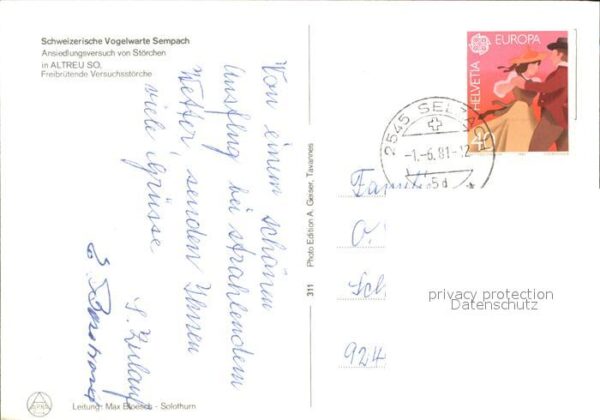 Schweizerische Vogelwarte Sempach
Ansiedlungsversuch von Störchen
in ALTREU SO,
Freibrütende Versuchsstörche
Von einem schönen
Ausflug bei strahlendem
Wetter, senden Ihnen
viele Grüsse,
S. Zulauf
311 Photo Edition A. Geiser, Tavannes
Leitung: Max Bloesch - Solothurn
EUROPA
HELVETIA
2545 SELZ
-1.-6.81-12
5d
Famili
O.
Sch
924
privacy protection
Datenschutz